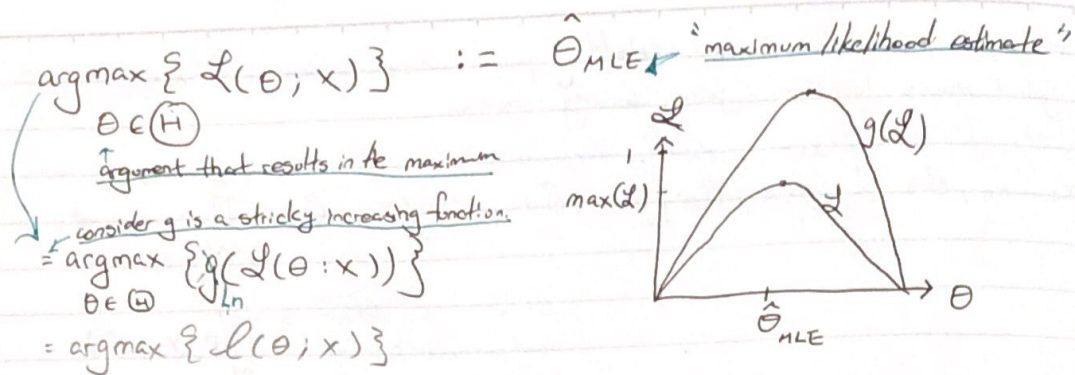 argmax { ℒ(θ; x) } := θ̂ MLE "maximum likelihood estimate"
θ ∈ Ⓗ
argument that results in the maximum
consider g is a stricky increasing function.
= argmax {g(ℒ(θ : x))}
θ ∈ Ⓗ
Ln
= argmax { ℓ(θ; x) }
ℒ
1
max(ℒ)
g(ℒ)
ℒ
θ
θ̂ MLE